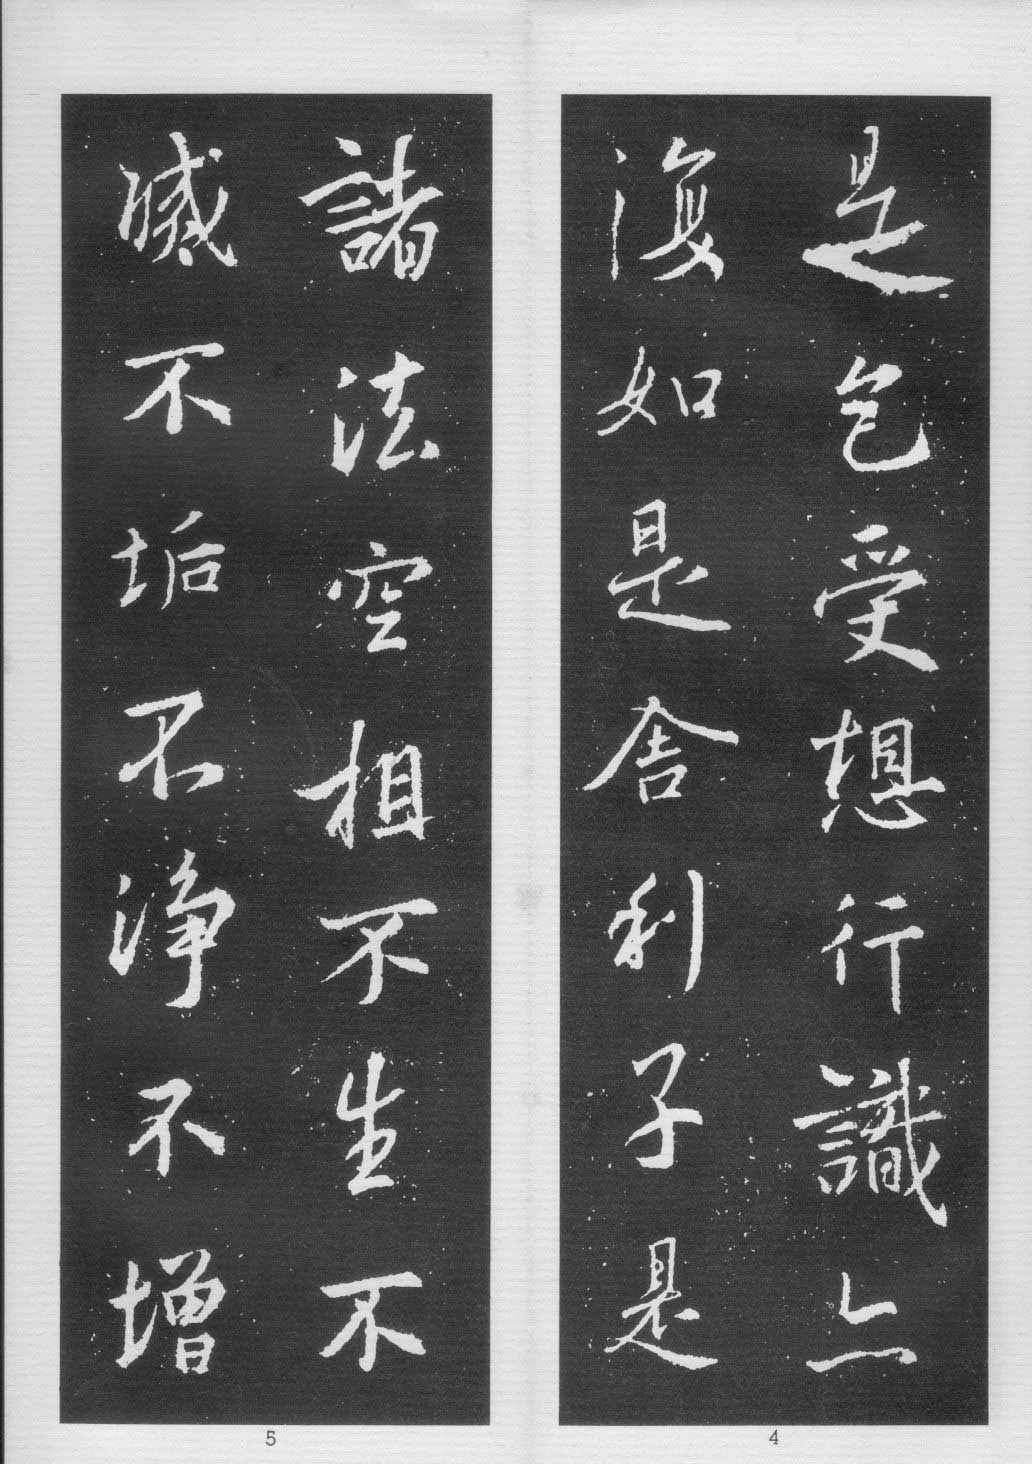 是色受想行識亦
復如是舍利子是
4
諸法空相不生不
滅不垢不淨不增
5